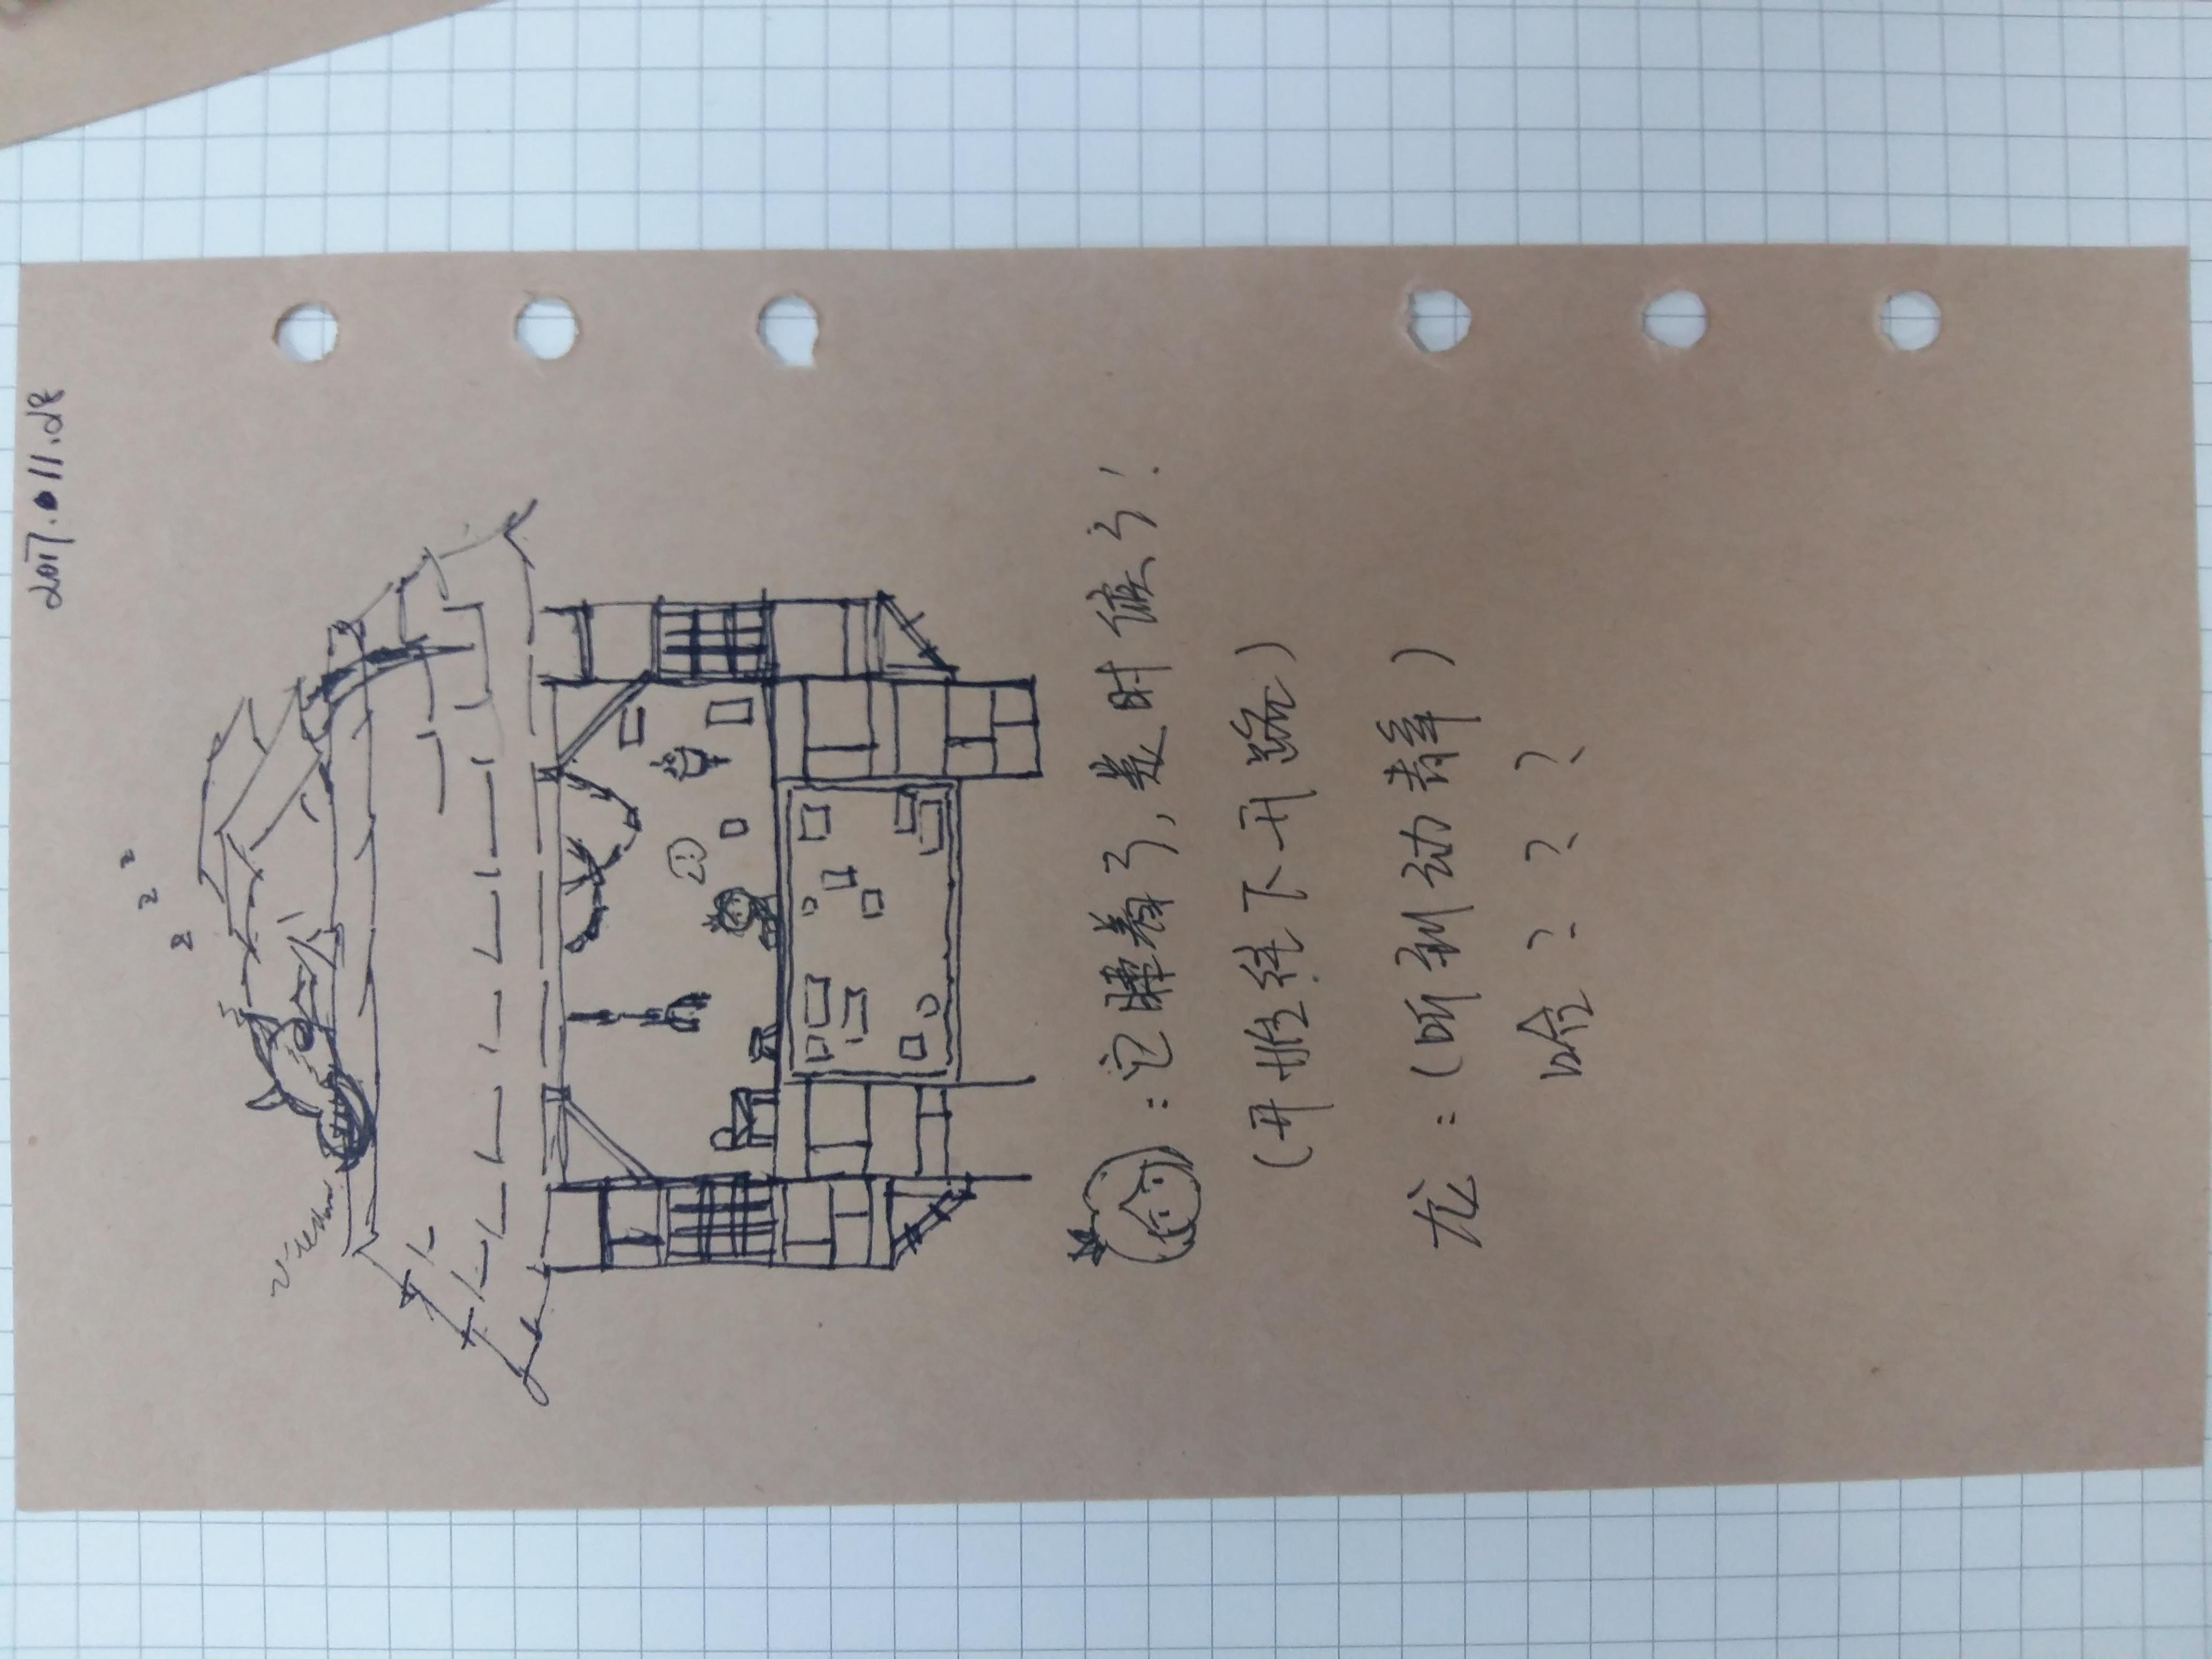 2017.11.08
z z z
：它睡着了，是时候了！
（开始往下开路）
龙：（听到动静）
啥？？？？